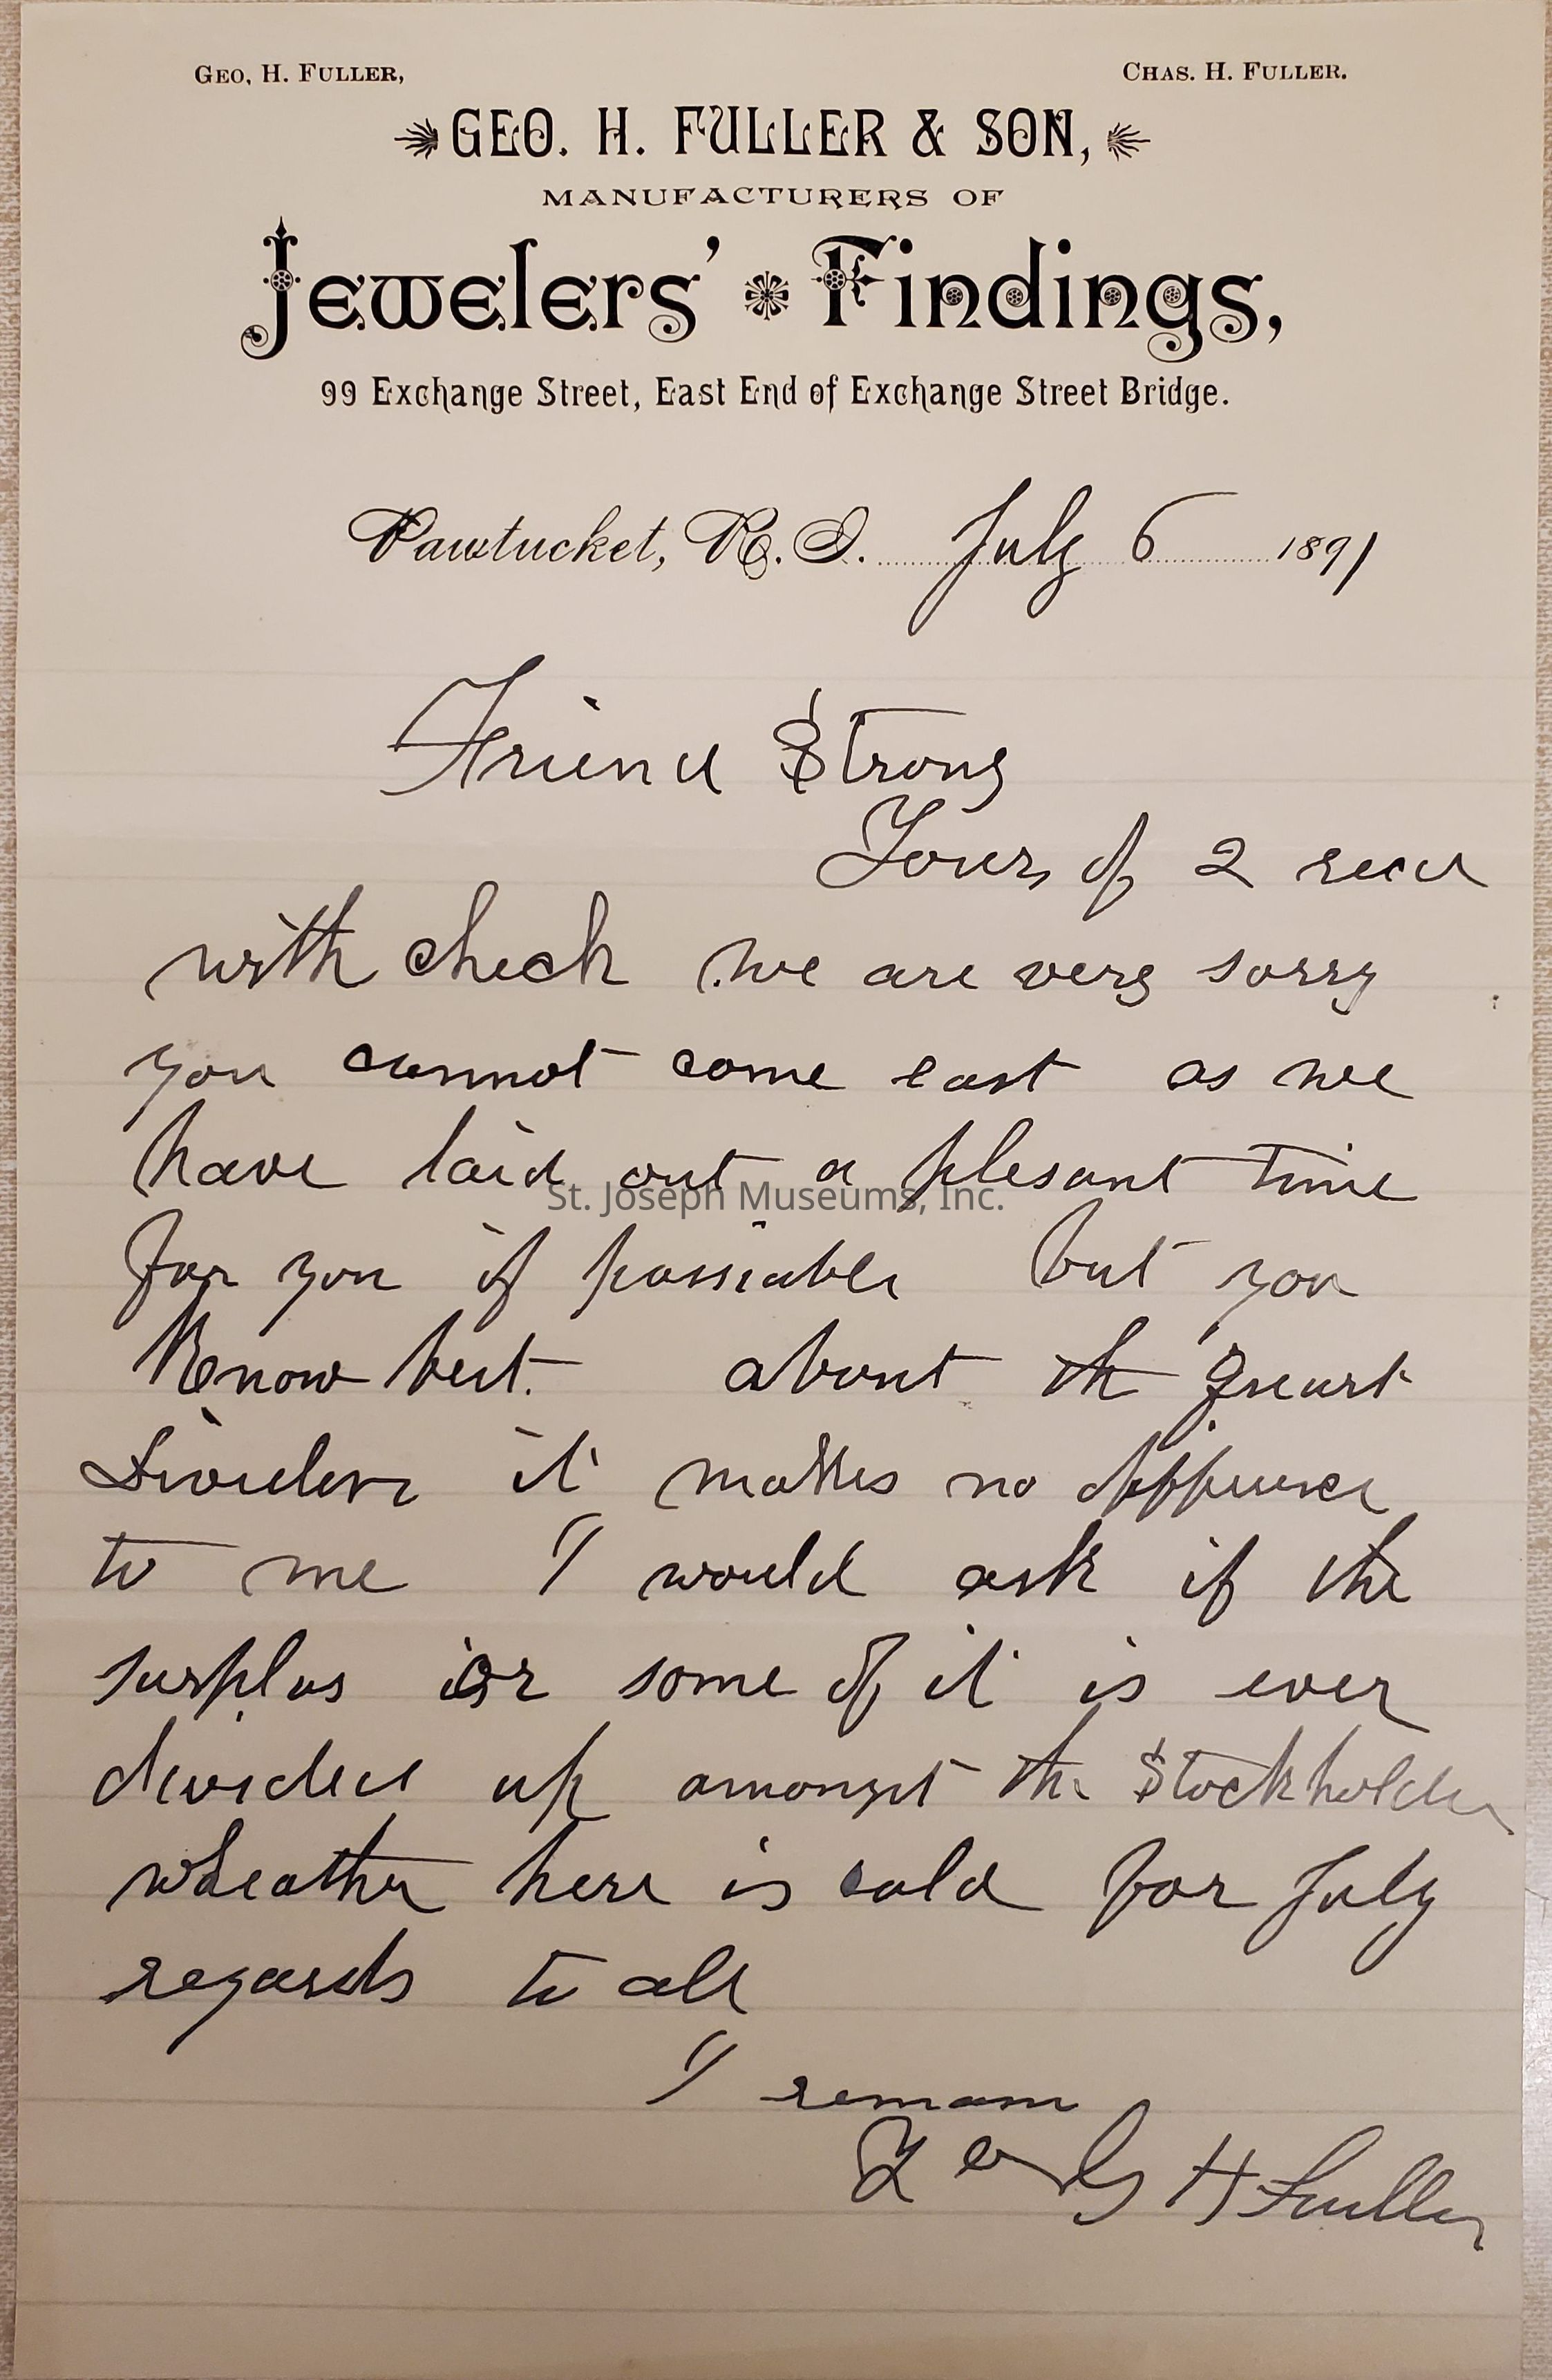 GEO. H. FULLER, CHAS. H. FULLER.
GEO. H. FULLER & SON,
MANUFACTURERS OF
Jewelers' Findings,
99 Exchange Street, East End of Exchange Street Bridge.
Pawtucket, R. I. July 6 1891
Friend Strong
Yours of 2 recd
with check we are very sorry
you cannot come east as we
have laid out a plesant time
St. Joseph Museums, Inc.
for you if possiable but you
know best. about the
it makes no
to me I would ask if the
surplus or some of it is ever
divided up amongst the Stockholders
wheather here is cold for July
regards to all
I remain
G H Fuller